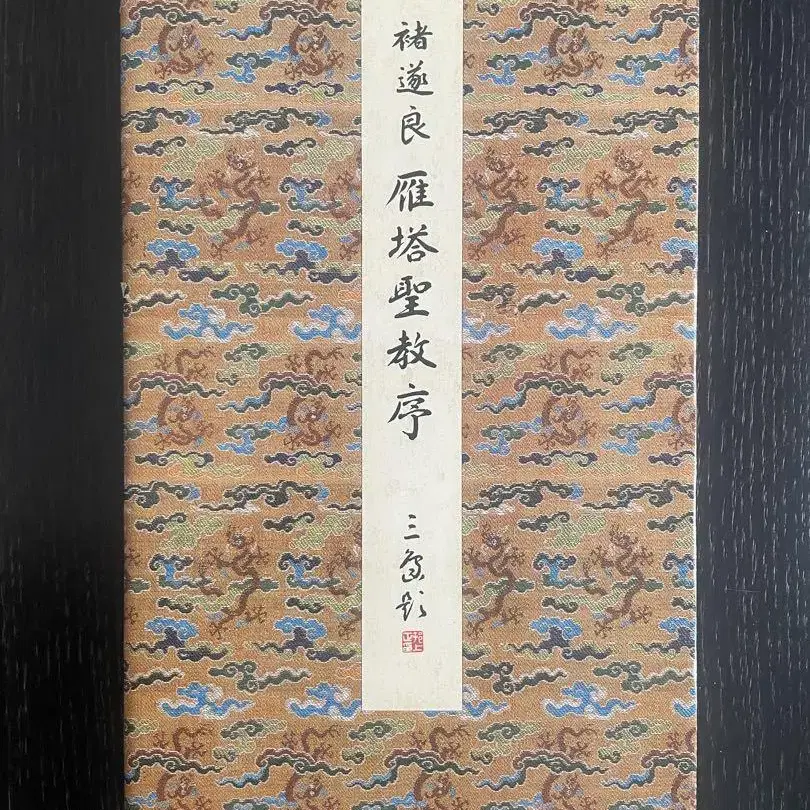 褚遂良 雁塔聖教序 三島題